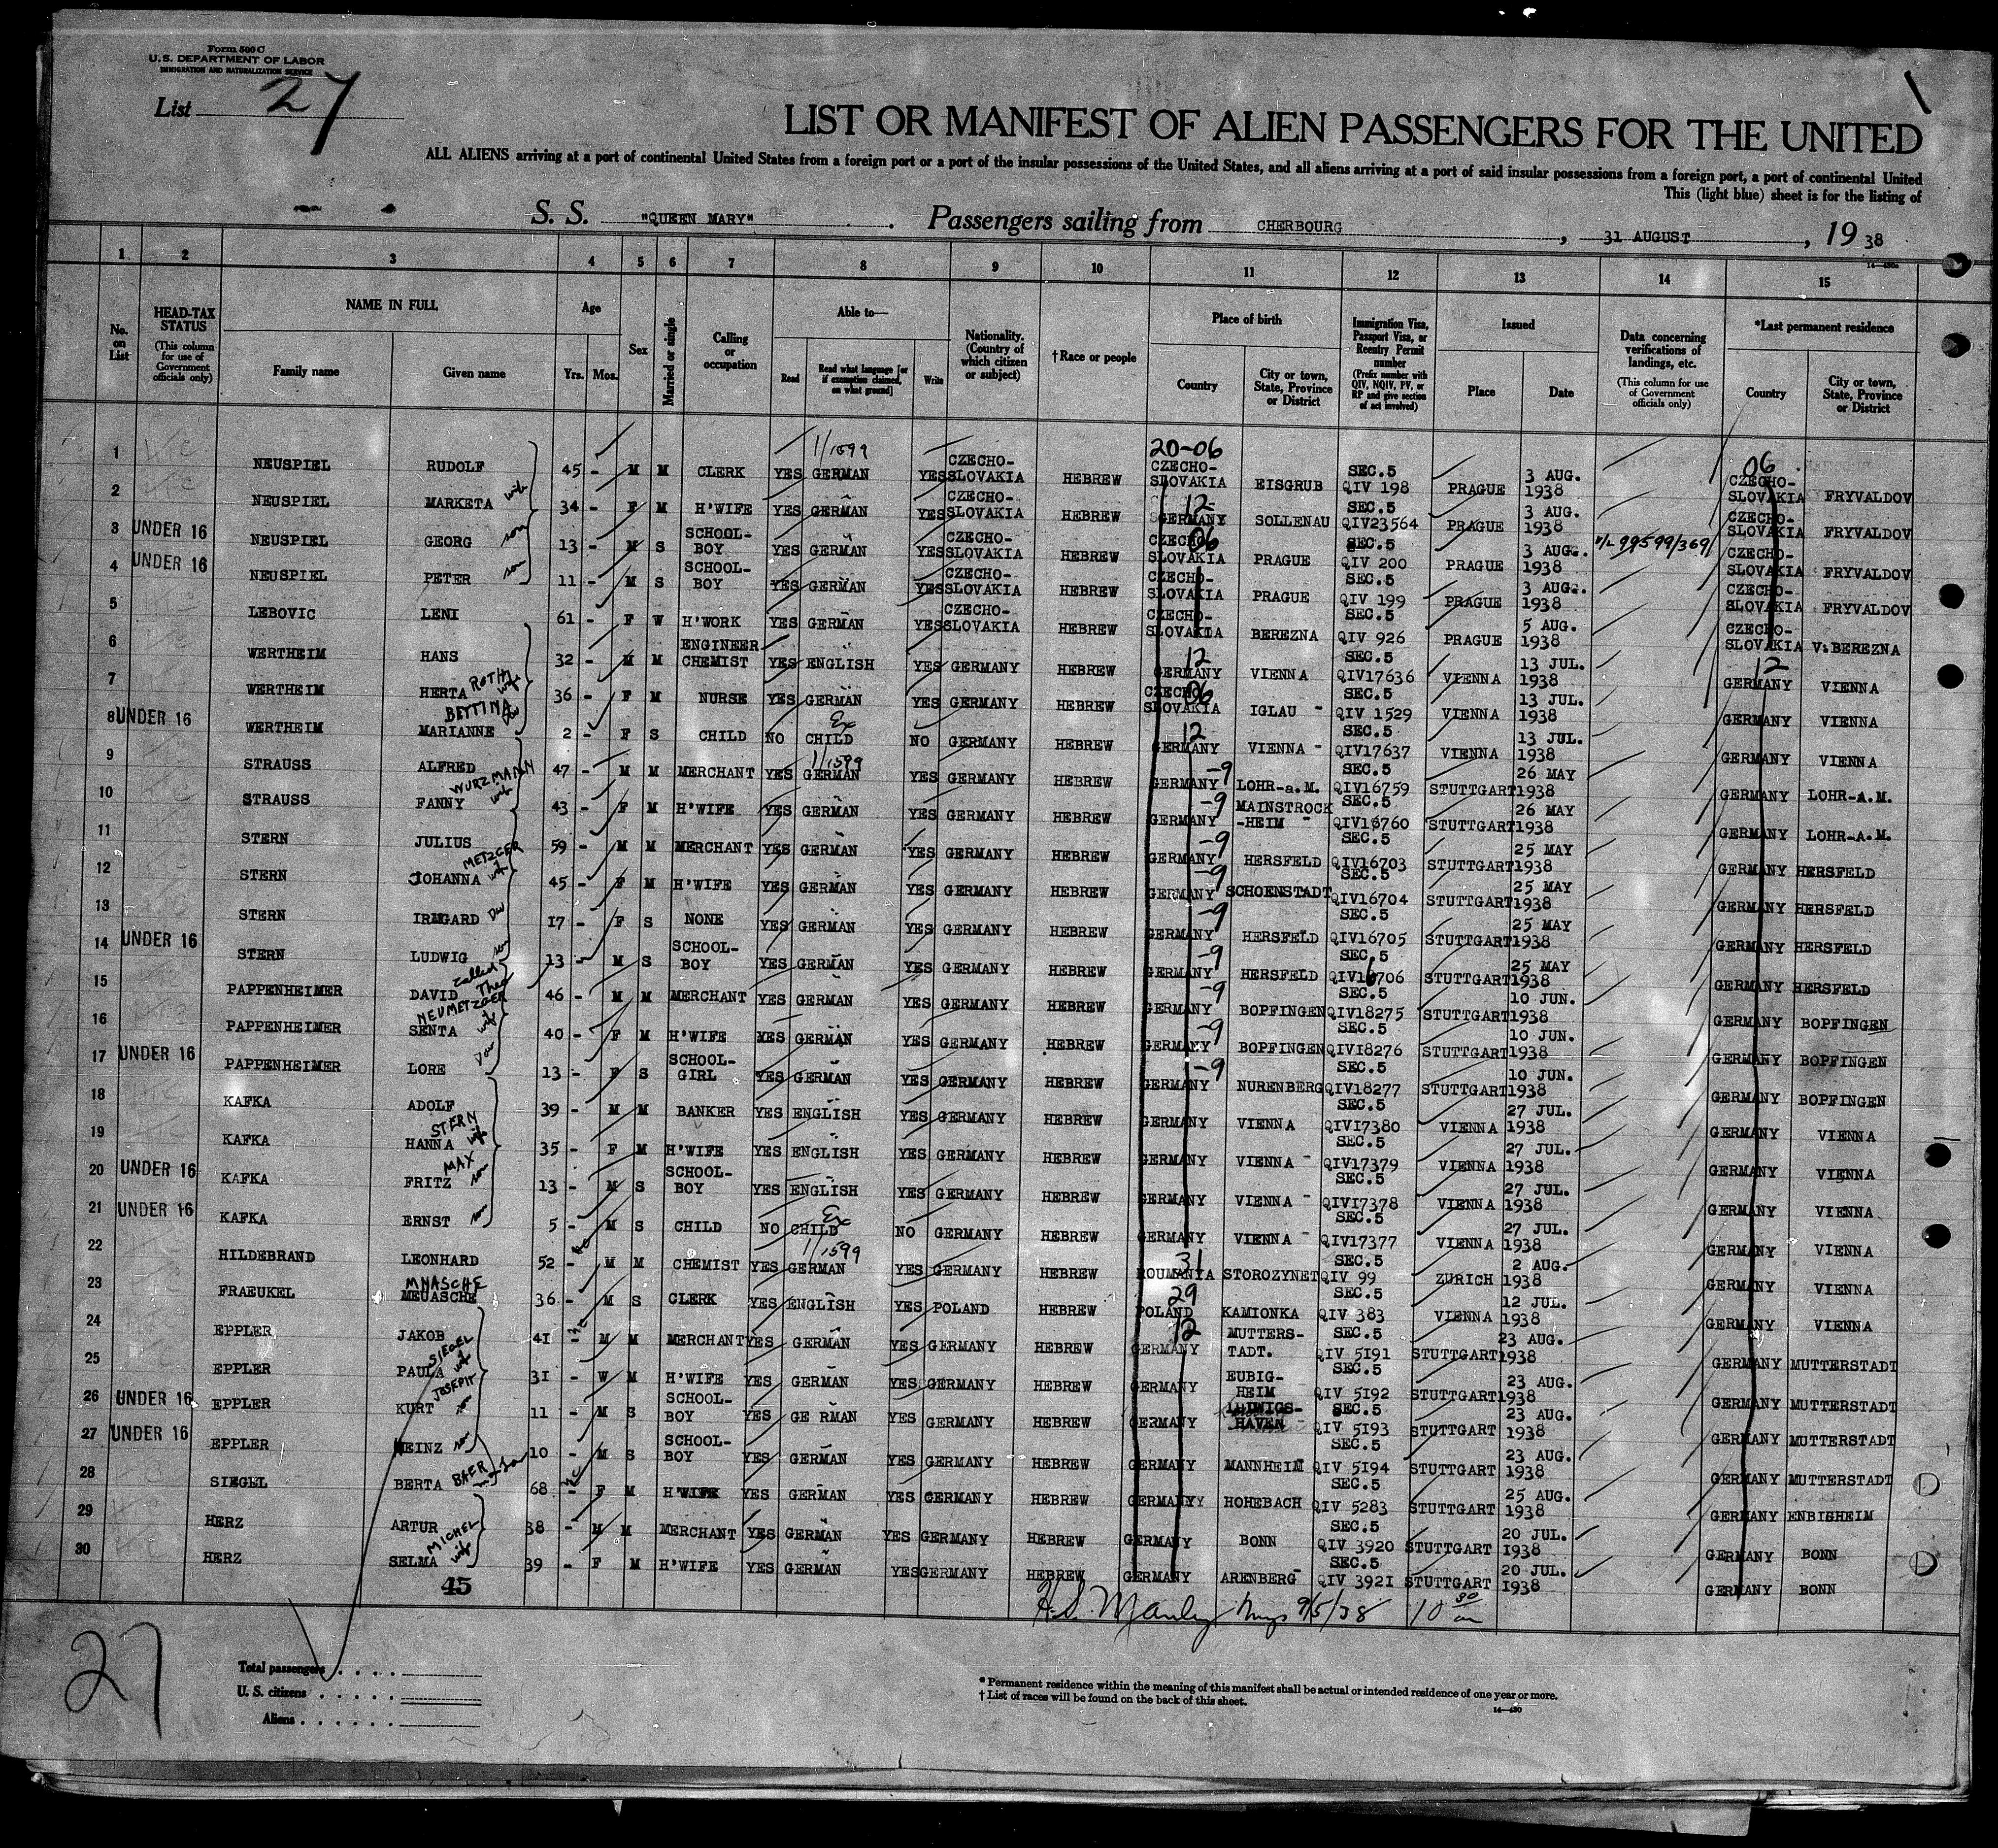 Form 500 C
U.S. DEPARTMENT OF LABOR
IMMIGRATION AND NATURALIZATION SERVICE
List 27
LIST OR MANIFEST OF ALIEN PASSENGERS FOR THE UNITED
ALL ALIENS arriving at a port of continental United States from a foreign port or a port of the insular possessions of the United States, and all aliens arriving at a port of said insular possessions from a foreign port, a port of continental United
This (light blue) sheet is for the listing of
S. S. "QUEEN MARY" Passengers sailing from CHERBOURG, 31 AUGUST, 19 38
1 2 3 4 5 6 7 8 9 10 11 12 13 14 15
No. on List
HEAD-TAX STATUS (This column for use of Government officials only)
NAME IN FULL
Family name Given name
Age Yrs. Mos.
Sex
Married or single
Calling or occupation
Able to—
Read Read what language [or if exemption claimed, on what ground] Write
Nationality. (Country of which citizen or subject)
†Race or people
Place of birth
Country City or town, State, Province or District
Immigration Visa, Passport Visa, or Reentry Permit number (Prefix number with QIV, NQIV, PV, or RP and give section of act involved)
Issued
Place Date
Data concerning verifications of landings, etc. (This column for use of Government officials only)
*Last permanent residence
Country City or town, State, Province or District
1 NEUSPIEL RUDOLF 45 - M M CLERK YES GERMAN YES CZECHO-SLOVAKIA HEBREW CZECHO-SLOVAKIA 20-06 EISGRUB SEC.5 QIV 198 PRAGUE 3 AUG. 1938 06 CZECHO-SLOVAKIA FRYVALDOV
2 NEUSPIEL MARKETA wife 34 - F M H'WIFE YES GERMAN YES CZECHO-SLOVAKIA HEBREW 12 GERMANY SOLLENAU SEC.5 QIV23564 PRAGUE 3 AUG. 1938 CZECHO-SLOVAKIA FRYVALDOV
3 UNDER 16 NEUSPIEL GEORG son 13 - M S SCHOOL-BOY YES GERMAN YES CZECHO-SLOVAKIA HEBREW 06 CZECHO-SLOVAKIA PRAGUE SEC.5 QIV 200 PRAGUE 3 AUG. 1938 99599/369 CZECHO-SLOVAKIA FRYVALDOV
4 UNDER 16 NEUSPIEL PETER son 11 - M S SCHOOL-BOY YES GERMAN YES CZECHO-SLOVAKIA HEBREW CZECHO-SLOVAKIA PRAGUE SEC.5 QIV 199 PRAGUE 3 AUG. 1938 CZECHO-SLOVAKIA FRYVALDOV
5 LEBOVIC LENI 61 - F W H'WORK YES GERMAN YES CZECHO-SLOVAKIA HEBREW CZECHO-SLOVAKIA BEREZNA SEC.5 QIV 926 PRAGUE 5 AUG. 1938 CZECHO-SLOVAKIA V.BEREZNA
6 WERTHEIM HANS 32 - M M ENGINEER CHEMIST YES ENGLISH YES GERMANY HEBREW 12 GERMANY VIENNA SEC.5 QIV17636 VIENNA 13 JUL. 1938 12 GERMANY VIENNA
7 WERTHEIM HERTA ROTH wife 36 - F M NURSE YES GERMAN YES GERMANY HEBREW 06 CZECHO-SLOVAKIA IGLAU - SEC.5 QIV 1529 VIENNA 13 JUL. 1938 GERMANY VIENNA
8 UNDER 16 WERTHEIM BETTINA MARIANNE 2 - F S CHILD NO Ex CHILD NO GERMANY HEBREW 12 GERMANY VIENNA - SEC.5 QIV17637 VIENNA 13 JUL. 1938 GERMANY VIENNA
9 STRAUSS ALFRED 47 - M M MERCHANT YES GERMAN YES GERMANY HEBREW GERMANY -9 LOHR-a.M. SEC.5 QIV16759 STUTTGART 26 MAY 1938 GERMANY LOHR-A.M.
10 STRAUSS FANNY WURZMANN wife 43 - F M H'WIFE YES GERMAN YES GERMANY HEBREW GERMANY -9 MAINSTROCK-HEIM - SEC.5 QIV16760 STUTTGART 26 MAY 1938 GERMANY LOHR-A.M.
11 STERN JULIUS 59 - M M MERCHANT YES GERMAN YES GERMANY HEBREW GERMANY -9 HERSFELD SEC.5 QIV16703 STUTTGART 25 MAY 1938 GERMANY HERSFELD
12 STERN JOHANNA METZGER wife 45 - F M H'WIFE YES GERMAN YES GERMANY HEBREW GERMANY -9 SCHOENSTADT SEC.5 QIV16704 STUTTGART 25 MAY 1938 GERMANY HERSFELD
13 STERN IRMGARD 17 - F S NONE YES GERMAN YES GERMANY HEBREW GERMANY -9 HERSFELD SEC.5 QIV16705 STUTTGART 25 MAY 1938 GERMANY HERSFELD
14 UNDER 16 STERN LUDWIG son 13 - M S SCHOOL-BOY YES GERMAN YES GERMANY HEBREW GERMANY -9 HERSFELD SEC.5 QIV16706 STUTTGART 25 MAY 1938 GERMANY HERSFELD
15 PAPPENHEIMER DAVID called Theo 46 - M M MERCHANT YES GERMAN YES GERMANY HEBREW GERMANY -9 BOPFINGEN SEC.5 QIV18275 STUTTGART 10 JUN. 1938 GERMANY BOPFINGEN
16 PAPPENHEIMER SENTA NEUMETZGER wife 40 - F M H'WIFE YES GERMAN YES GERMANY HEBREW GERMANY -9 BOPFINGEN SEC.5 QIV18276 STUTTGART 10 JUN. 1938 GERMANY BOPFINGEN
17 UNDER 16 PAPPENHEIMER LORE 13 - F S SCHOOL-GIRL YES GERMAN YES GERMANY HEBREW GERMANY -9 NURENBERG SEC.5 QIV18277 STUTTGART 10 JUN. 1938 GERMANY BOPFINGEN
18 KAFKA ADOLF 39 - M M BANKER YES ENGLISH YES GERMANY HEBREW GERMANY VIENNA SEC.5 QIV17380 VIENNA 27 JUL. 1938 GERMANY VIENNA
19 KAFKA HANNA STERN wife 35 - F M H'WIFE YES ENGLISH YES GERMANY HEBREW GERMANY VIENNA - SEC.5 QIV17379 VIENNA 27 JUL. 1938 GERMANY VIENNA
20 UNDER 16 KAFKA FRITZ MAX son 13 - M S SCHOOL-BOY YES ENGLISH YES GERMANY HEBREW GERMANY VIENNA - SEC.5 QIV17378 VIENNA 27 JUL. 1938 GERMANY VIENNA
21 UNDER 16 KAFKA ERNST son 5 - M S CHILD NO Ex CHILD NO GERMANY HEBREW GERMANY VIENNA - SEC.5 QIV17377 VIENNA 27 JUL. 1938 GERMANY VIENNA
22 HILDEBRAND LEONHARD 52 - M M CHEMIST YES GERMAN YES GERMANY HEBREW 31 ROUMANIA STOROZYNET SEC.5 QIV 99 ZURICH 2 AUG. 1938 GERMANY VIENNA
23 FRAEUKEL MNASCHE MEUASCHE 36 - M S CLERK YES ENGLISH YES POLAND HEBREW 29 POLAND KAMIONKA SEC.5 QIV 383 VIENNA 12 JUL. 1938 GERMANY VIENNA
24 EPPLER JAKOB 41 - M M MERCHANT YES GERMAN YES GERMANY HEBREW 12 GERMANY MUTTERS-TADT. SEC.5 QIV 5191 STUTTGART 23 AUG. 1938 GERMANY MUTTERSTADT
25 EPPLER PAULA SIEGEL wife 31 - W M H'WIFE YES GERMAN YES GERMANY HEBREW GERMANY EUBIG-HEIM SEC.5 QIV 5192 STUTTGART 23 AUG. 1938 GERMANY MUTTERSTADT
26 UNDER 16 EPPLER KURT JOSEPH son 11 - M S SCHOOL-BOY YES GE RMAN YES GERMANY HEBREW GERMANY LUDWIGS-HAVEN SEC.5 QIV 5193 STUTTGART 23 AUG. 1938 GERMANY MUTTERSTADT
27 UNDER 16 EPPLER HEINZ son 10 - M S SCHOOL-BOY YES GERMAN YES GERMANY HEBREW GERMANY MANNHEIM SEC.5 QIV 5194 STUTTGART 23 AUG. 1938 GERMANY MUTTERSTADT
28 SIEGEL BERTA BAER 68 - F M H'WIFE YES GERMAN YES GERMANY HEBREW GERMANYY HOHEBACH SEC.5 QIV 5283 STUTTGART 25 AUG. 1938 GERMANY ENBIGHEIM
29 HERZ ARTUR 38 - M M MERCHANT YES GERMAN YES GERMANY HEBREW GERMANY BONN SEC.5 QIV 3920 STUTTGART 20 JUL. 1938 GERMANY BONN
30 HERZ SELMA MICHEL wife 39 - F M H'WIFE YES GERMAN YES GERMANY HEBREW GERMANY ARENBERG SEC.5 QIV 3921 STUTTGART 20 JUL. 1938 GERMANY BONN
45
H.S. Manley 9/5/38 10 30 am
27
Total passengers
U. S. citizens
Aliens
* Permanent residence within the meaning of this manifest shall be actual or intended residence of one year or more.
† List of races will be found on the back of this sheet.
14—430